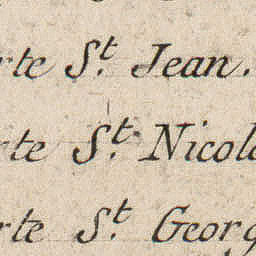 rte St. Jean.
rte St. Nicola
rte St. Georg